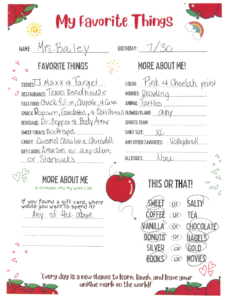 My Favorite Things
NAME: Mrs. Bailey BIRTHDAY: 7/30
FAVORITE THINGS
STORES: TJ Maxx or Target
RESTAURANTS: Texas Roadhouse
FAST FOOD: Chick-fil-a, Chipotle, or Canes
SNACK: Popcorn,
BEVERAGE: Dr. Pepper or Body Armor
SWEET TREATS:
CANDY: Caramel
GIFT CARDS: Amazon or any above
or Starbucks
MORE ABOUT ME!
COLOR: Pink or Cheetah print
HOBBIES: Reading
ANIMAL: Turtles
FLOWER/PLANT: any
SPORTS TEAM:
SHIRT SIZE: XL
ANY OTHER FAVORITES: Volleyball
ALLERGIES: None
MORE ABOUT ME
If you found a gift card, where
would you want to spend it?
Any of the above
THIS OR THAT!
SWEET or SALTY
COFFEE or TEA
VANILLA or CHOCOLATE
DONUTS or BAGELS
SILVER or GOLD
BOOKS or MOVIES
Every day is a new chance to learn, laugh, and leave your
unique mark on the world!